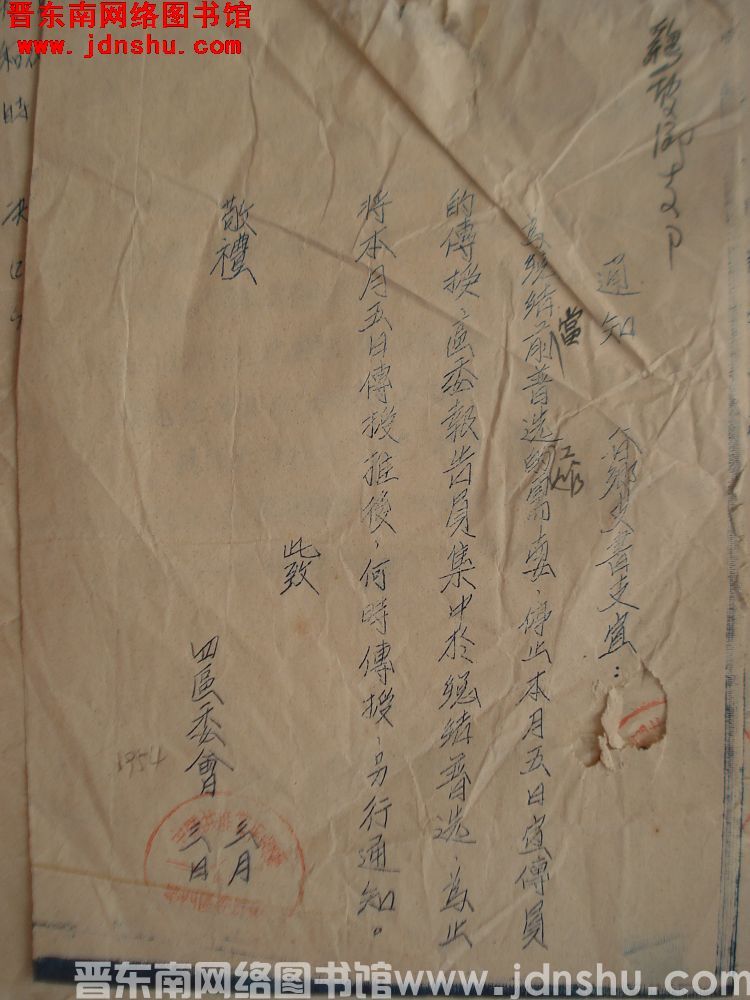 晋东南网络图书馆
www.jdnshu.com
通知
各鄉支書支宣：
為總結當前普选工作的需要，停止本月五日宣傳員
的傳授，區委報告員集中於總結普选，為此
將本月五日傳授推後，何時傳授，另行通知。
此致
敬禮
四區委會
三月
三日
1954
晋东南网络图书馆www.jdnshu.com